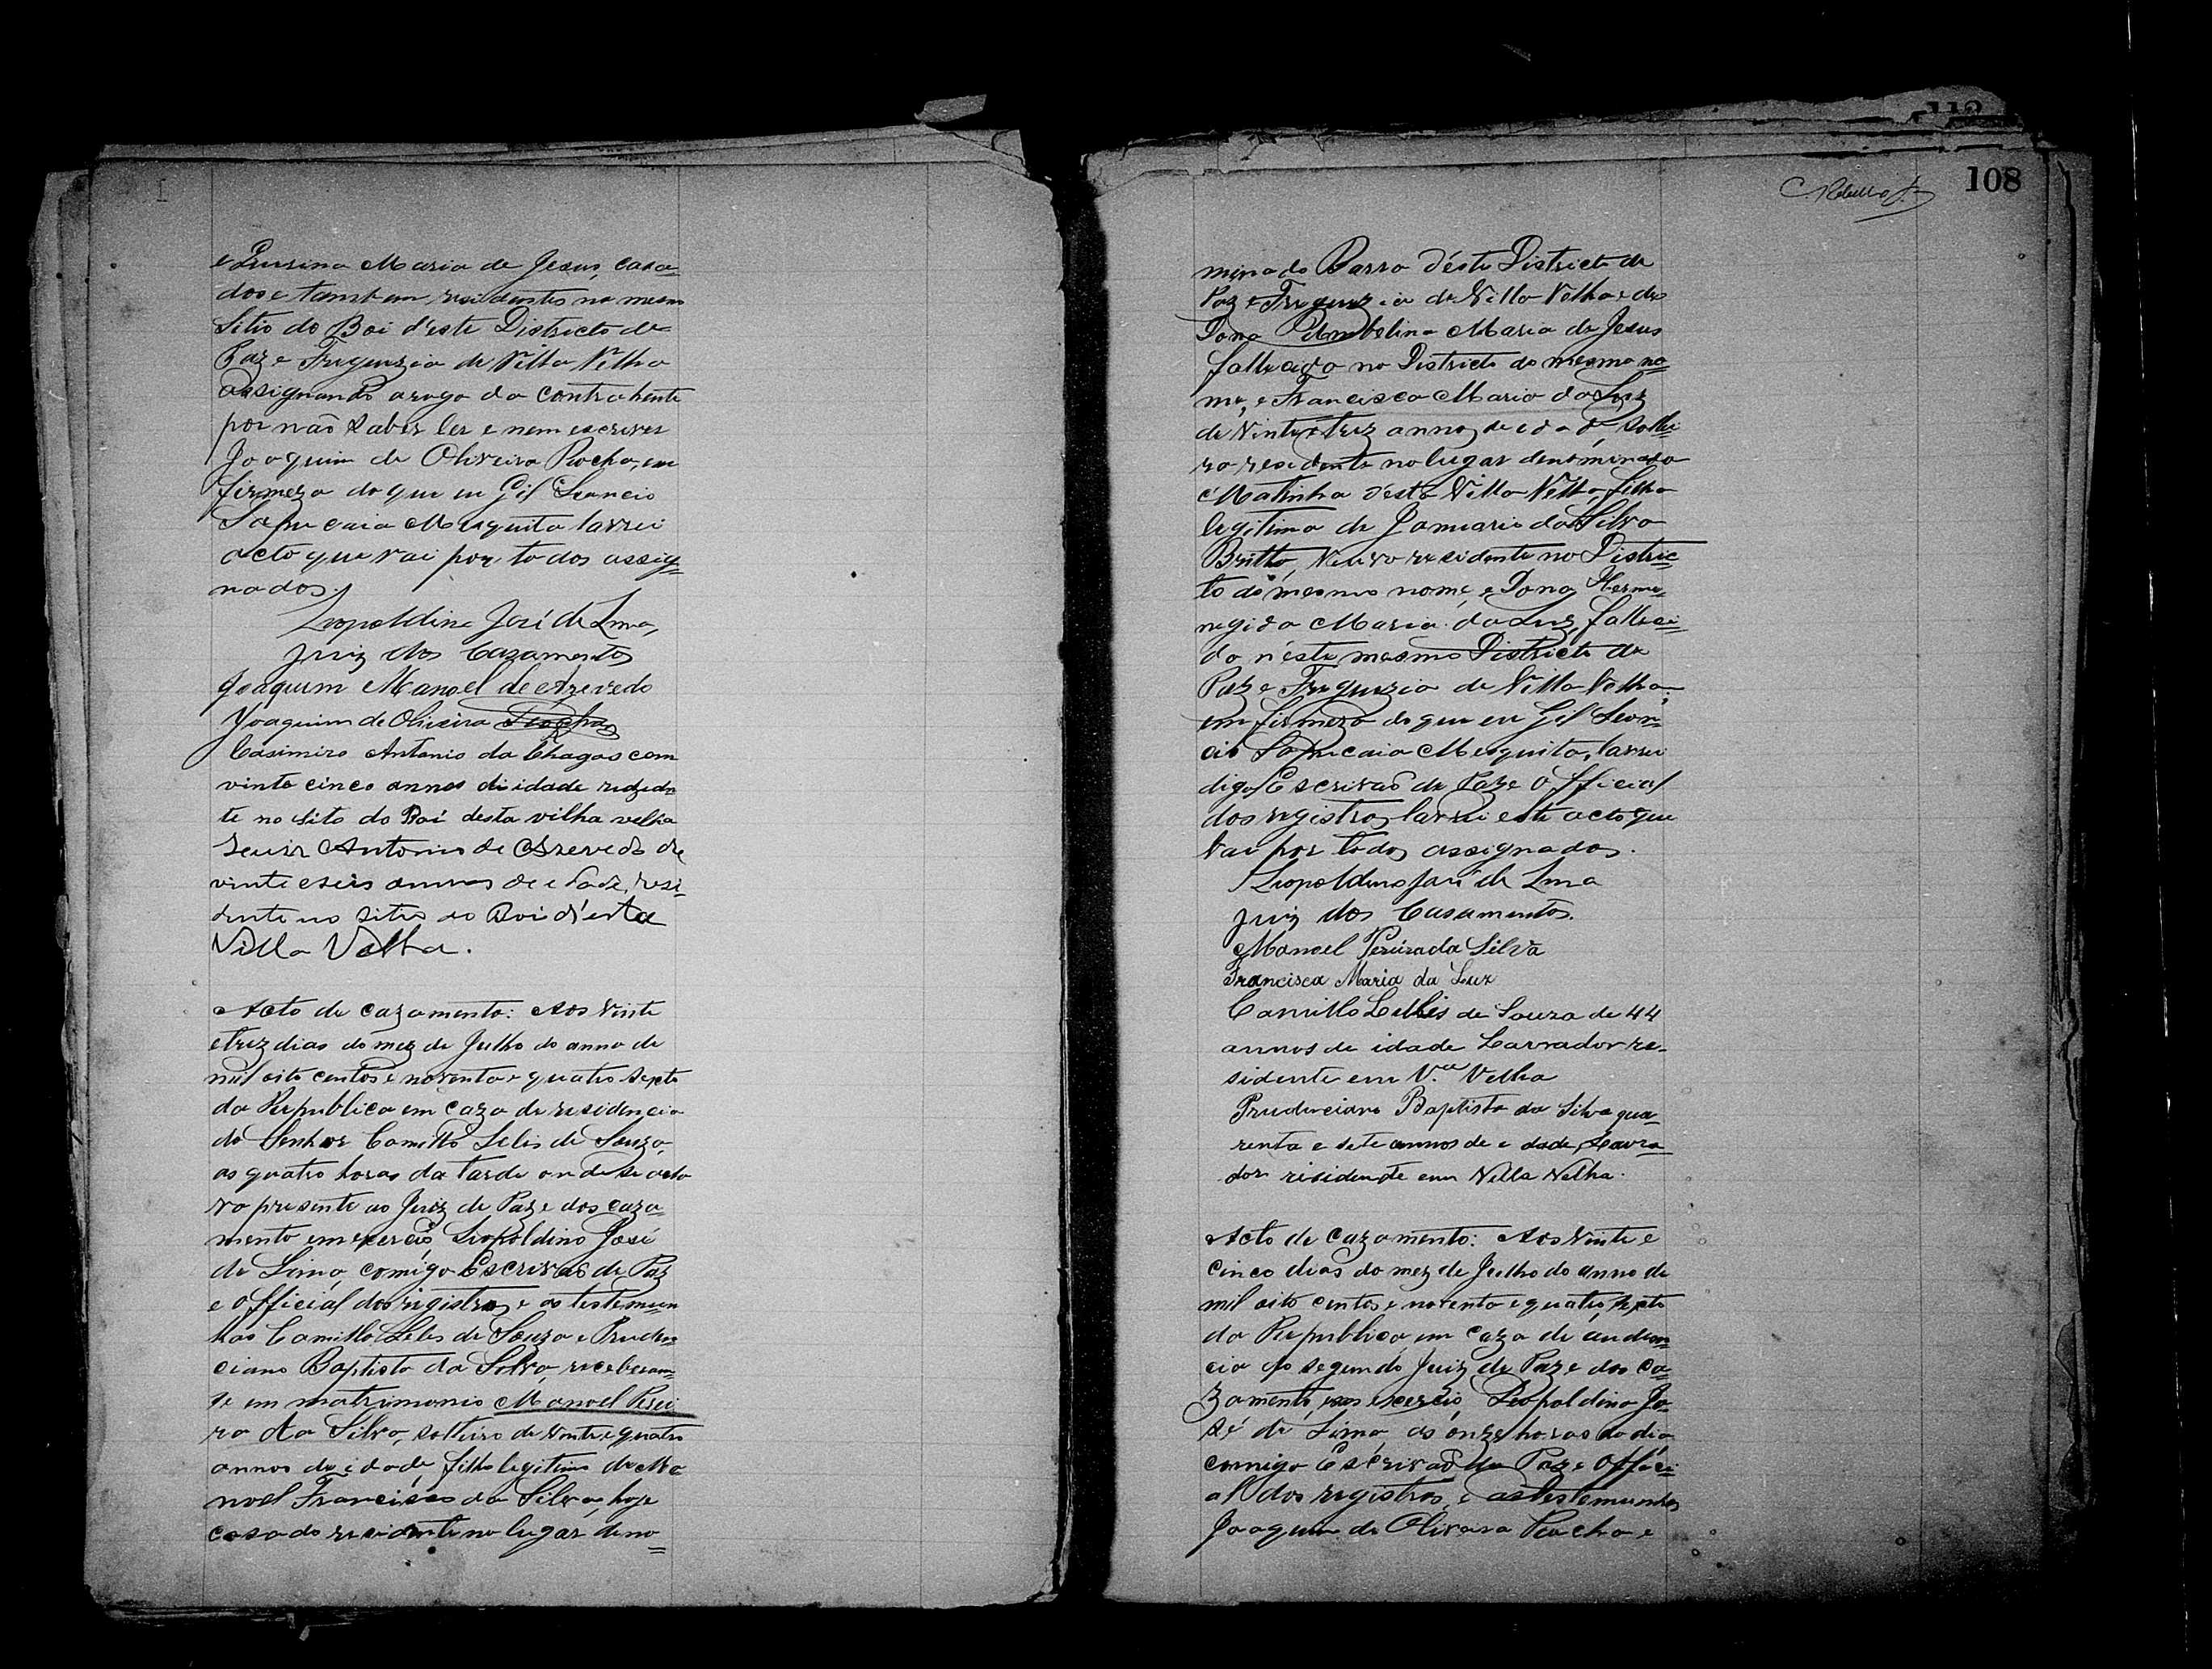 Maria de Jesus, casa=
dos e tambem residentes no mesmo
Sitio do Boi d'este Districto de
Paz e Freguezia de Villa Velha
assignando arogo da contrahente
por não saber ler e nem escrever
Joaquim de Oliveira Rocha, em
firmeza do que eu Gil Leoncio
Sapucaia Mesquita lavrei
acto que vai por todos assig=
nados.
Leopoldino José de Lima,
Juiz dos Cazamentos
Joaquim Manoel de Azevedo
Joaquim de Oliveira Rocha
Casimiro Antonio da Chagas com
vinte cinco annos di idade rezeden
te no sito do Boi desta vilha velha
Antonio de Azevedo de
vinte e seis annos de idade, resi=
dente no sitio do Boi d'esta
Villa Velha.
Acto de cazamento: Aos vinte
e trez dias do mez de Julho do anno de
mil oito centos e noventa e quatro sexto
da Republica em caza de residencia
do Senhor Camillo Lelis de Souza,
as quatro horas da tarde onde se acha
va presente ao Juiz de Paz e dos caza=
mento em exercio Leopoldino José
de Lima, comigo Escrivão de Paz
e Official dos registros e as testemun
has Camillo Lelis de Souza e Pruden
ciano Baptista da Silva, receberam=
se em matrimonio Manoel Perei
ra da Silva, solteiro de vinte e quatro
annos de idade, filho legitimo de Ma
noel Francisco da Silva, hoje
casado residente no lugar deno=
108
minado Barra d'este Districto de
Paz e Freguezia de Villa Velha e de
Dona Umbelina Maria de Jesus
fallecida no Districto do mesmo no=
me, e Francisca Maria da Luz
de vinte e trez annos de idade, soltei=
ra residente no lugar denominado
Matinha d'esta Villa Velha, filha
legitima de Januario da Silva
Britto, viuvo residente no Distric=
to do mesmo nome, e Dona Herme=
negida Maria da Luz, falleci=
da n'este mesmo Districto de
Paz e Freguezia de Villa Velha:
em firmeza do que eu Gil Leon=
cio Sapucaia Mesquita, lavrei
digo Escrivão de Paz e Official
dos registros lavrei este acto que
vai por todos assignados.
Leopoldino José de Lima
Juiz dos Casamentos.
Manoel Pereira da Silva
Francisca Maria da Luz
Camillo Lellis de Souza de 44
annos de idade Lavrador re-
sidente em V.ª Velha
Prudenciano Baptista da Silva qua=
renta e sete annos de e dade, Lavra=
dor risidente em Villa Velha.
Acto de cazamento: Aos vinte e
cinco dias do mez de Julho do anno de
mil oito centos e noventa e quatro, sexto
da Republica, em caza de áudien=
cia do segundo Juiz de Paz e dos ca=
zamento, em exercio, Leopoldino Jo=
sé de Lima, as onze horas do dia
comigo Escrivão de Paz e Offici=
al dos registros, e as testemunhas
Joaquim de Oliveira Rocha e